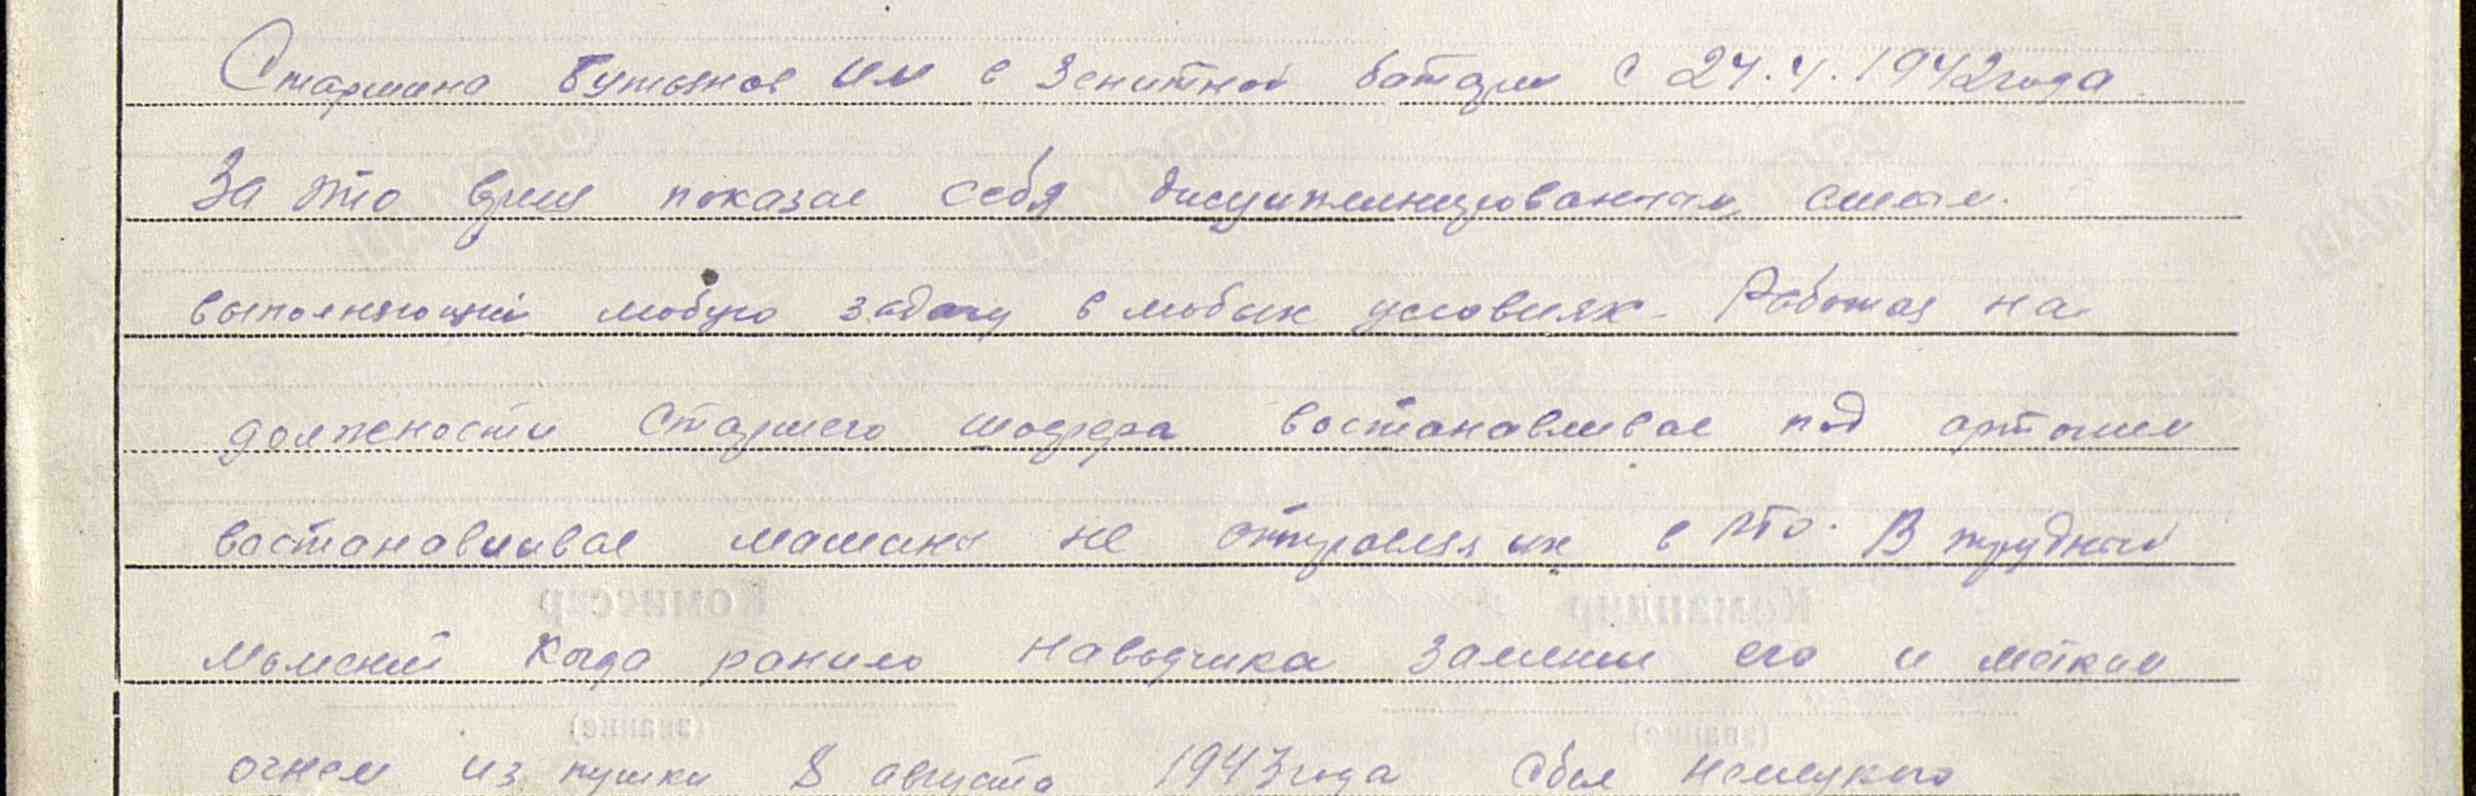 Старшина Бутынов ИМ в Зенитной батареи с 24.4.1942 года
За это время показал себя дисциплинированным, смелым.
выполняющий любую задачу в любых условиях. Работая на
должности старшего шофера востанавливал под артогнем
востанавливал машины не отправляя их в ПТО. В трудный
момент когда ранило наводчика заменил его и метким
огнем из пушки 8 августа 1943 года сбил немецкого